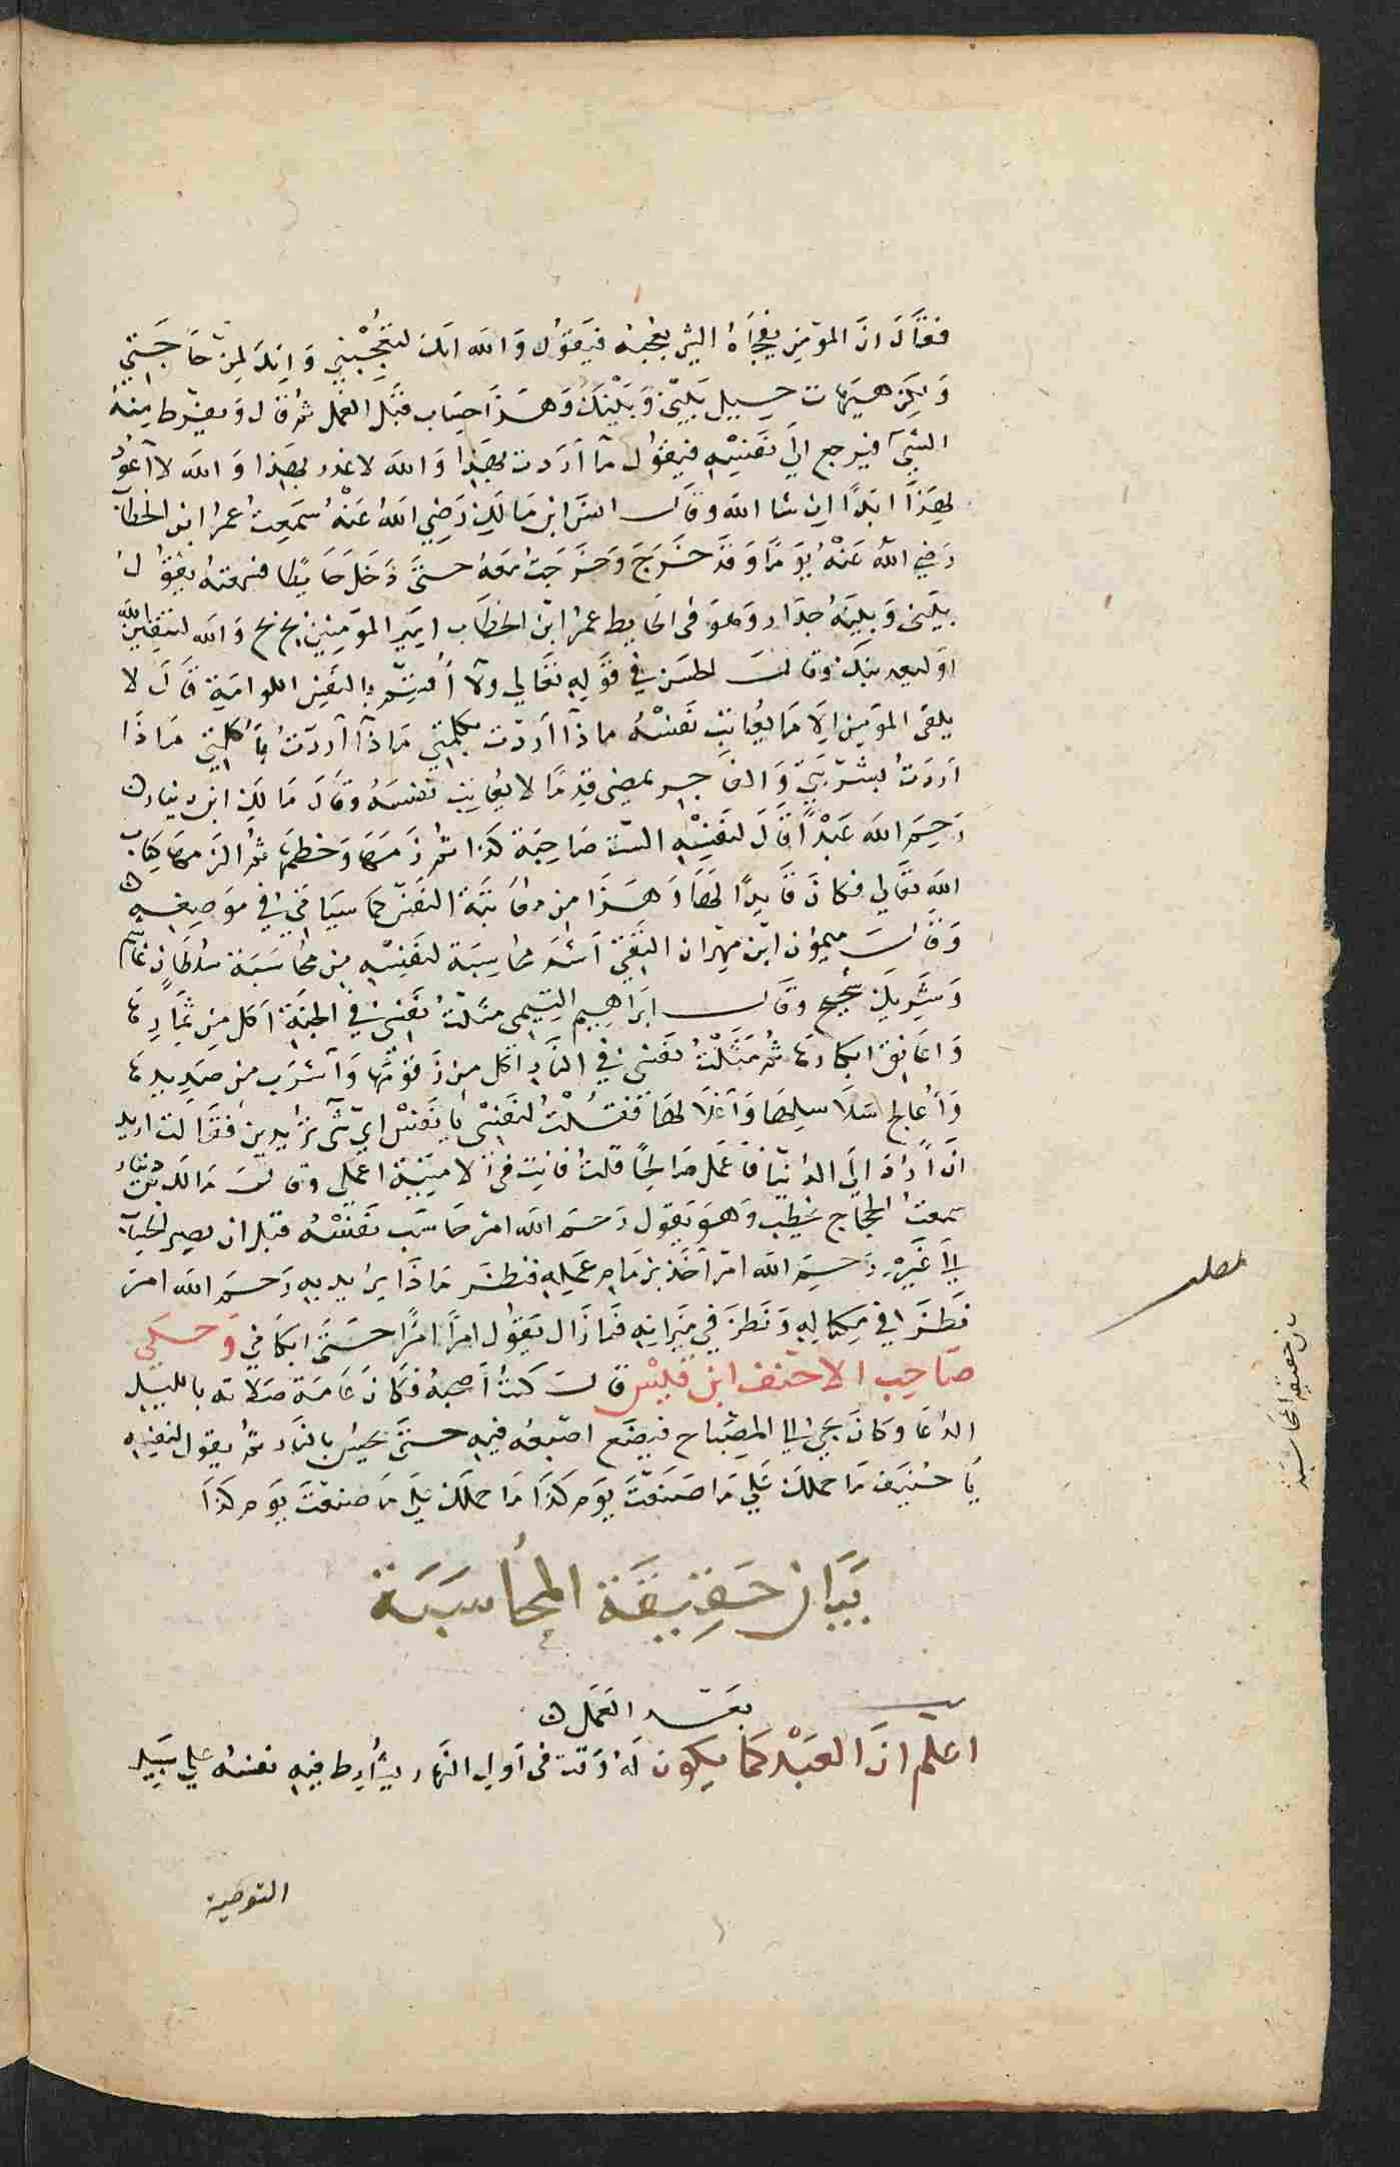 فقال ان المؤمن يفجأه الشي يعجبه فيقول والله انك لتعجبني وانك لمن حاجتي
ولكن هيهات حيل بيني وبينك وهذا حساب قبل العمل ثم قال ويفرط منه
الشي فيرجع الي نفسه فيقول ما اردت بهذا والله لا اعذر بهذا والله لا اعود
لهذا ابدا ان شا الله وقال انس ابن مالك رضي الله عنه سمعت عمر ابن الخطاب
رضي الله عنه يوما وقد خرج وخرجت معه حتى دخل حايطا فسمعته يقول
بيني وبينه جدار وهو في الحايط عمر ابن الخطاب امير المومنين بخ بخ والله لتتقين الله
او ليعذبنك وقال الحسن في قوله تعالي ولا أقسم بالنفس اللوامة قال لا
يلقى المومن الا ما يعاتب نفسه ماذا اردت بكلمتي ماذا اردت بأكلتي ماذا
اردت بشربتي والفاجر يمضي قدما لا يعاتب نفسه وقال مالك ابن دينار
رحم الله عبدا قال لنفسه الست صاحبة كذا ثم ذمها وخطمها ثم الزمها كتاب
الله تعالي فكان قايدا لها وهذا من معاتبة النفس كما سياتي في موضعه
وقال ميمون ابن مهران التقي اشد محاسبة لنفسه من محاسبة سلطان غاشم
وشريك شحيح وقال ابراهيم التيمي مثلت نفسي في الجنة آكل من ثمارها
واعانق ابكارها ثم مثلت نفسي في النار آكل من زقومها وآشرب من صديدها
وأعالج سلاسلها وآغلالها فقلت لنفسي يا نفس اي شي تريدين فقالت اريد
ان أراد الي الدنيا فاعمل صالحا قلت فانت في الامنية اعملي وقال مالك بن دينار
سمعت الحجاج يخطب وهو يقول رحم الله امرا حاسب نفسه قبل ان يصير الحساب
الي غيره رحم الله امرا أخذ بزمام عمله فنظر ماذا يريد به رحم الله امرا
نظر في مكياله ونظر في ميزانه فما زال يقول امرا امرا حتى ابكاني وحكي
صاحب الاحنف ابن قيس قال كنت أصحبه فكان عامة صلاته بالليل
الدعا وكان يجي الي المصباح فيضع اصبعه فيه حتى يحس بالنار ثم يقول لنفسه
يا حنيف ما حملك علي ما صنعت يوم كذا ما حملك علي ما صنعت يوم كذا
بيان حقيقة المحاسبة
بعد العمل
اعلم ان العبد كما يكون له وقت في اول النهار يشارط فيه نفسه علي سبيل
التوصية
مطلب
بيان حقيقة المحاسبة